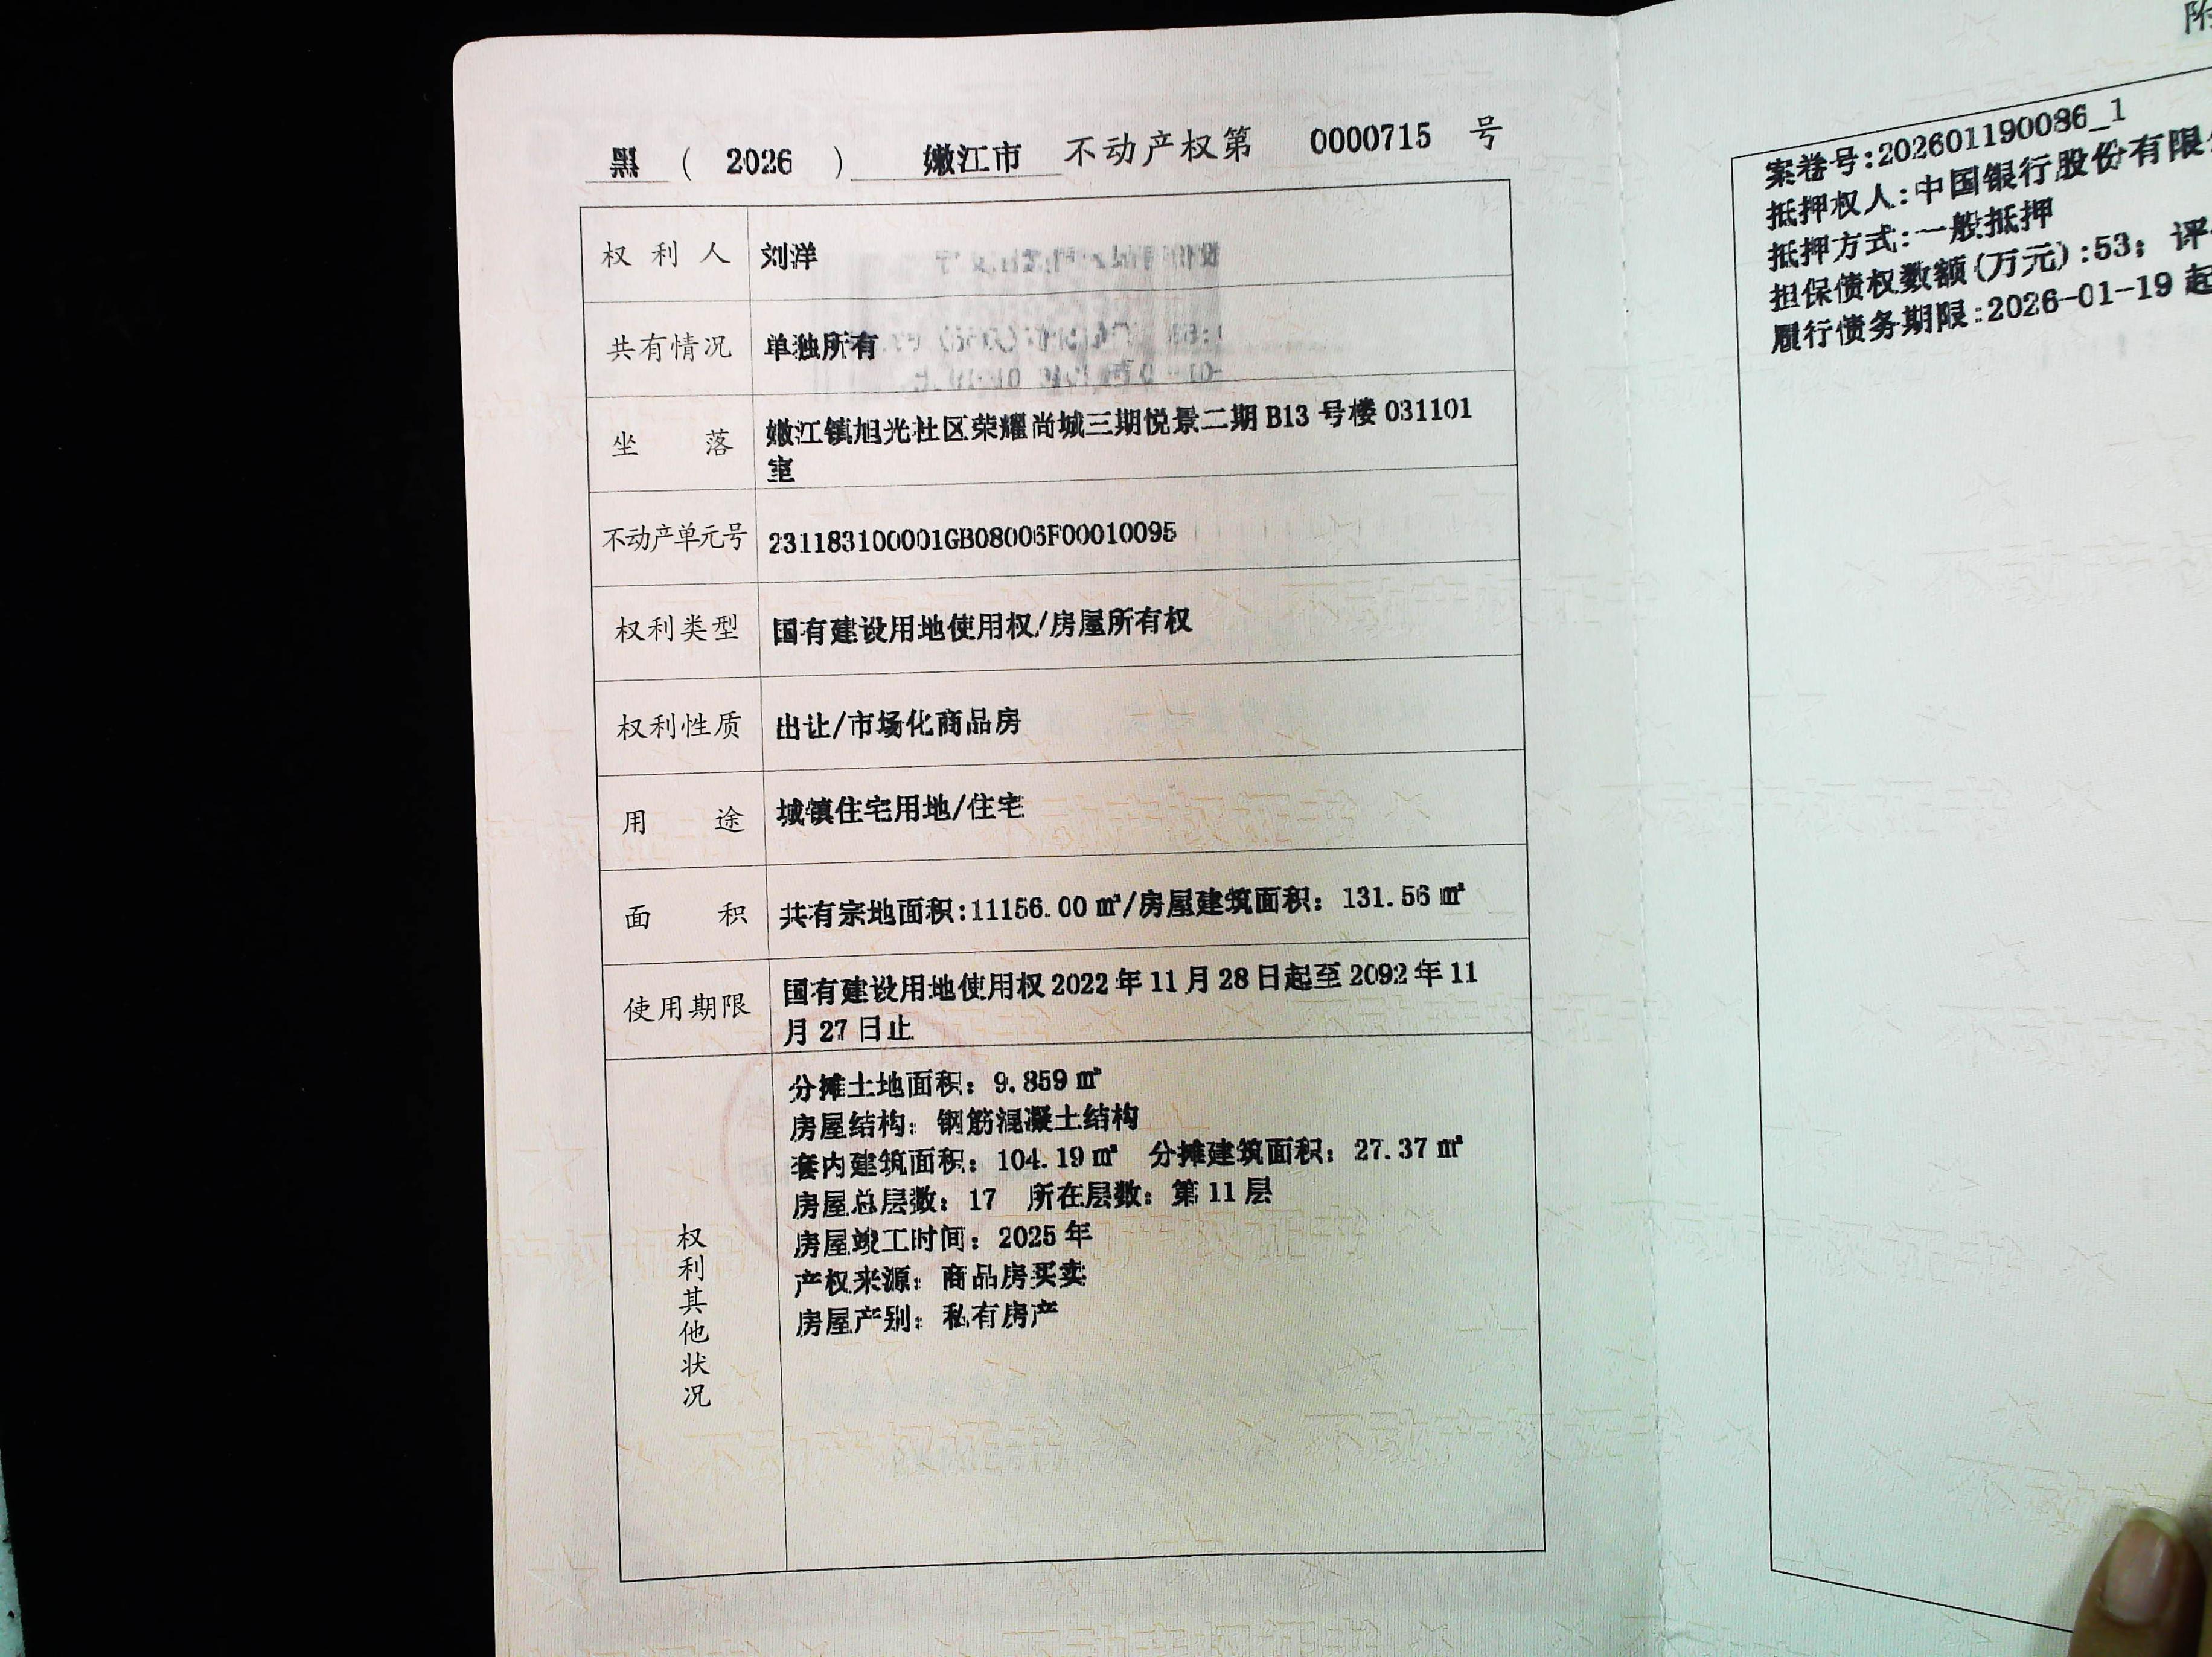 黑 ( 2026 ) 嫩江市 不动产权第 0000715 号
权利人 刘洋
共有情况 单独所有
坐落 嫩江镇旭光社区荣耀尚城三期悦景二期 B13 号楼 031101
室
不动产单元号 231183100001GB08006F00010095
权利类型 国有建设用地使用权/房屋所有权
权利性质 出让/市场化商品房
用途 城镇住宅用地/住宅
面积 共有宗地面积:11156.00 ㎡/房屋建筑面积: 131.56 ㎡
使用期限 国有建设用地使用权 2022 年 11 月 28 日起至 2092 年 11
月 27 日止
权利其他状况
分摊土地面积: 9.859 ㎡
房屋结构: 钢筋混凝土结构
套内建筑面积: 104.19 ㎡ 分摊建筑面积: 27.37 ㎡
房屋总层数: 17 所在层数: 第 11 层
房屋竣工时间: 2025 年
产权来源: 商品房买卖
房屋产别: 私有房产
附
案卷号:202601190086_1
抵押权人:中国银行股份有限
抵押方式:一般抵押
担保债权数额(万元):53; 评
履行债务期限:2026-01-19 起